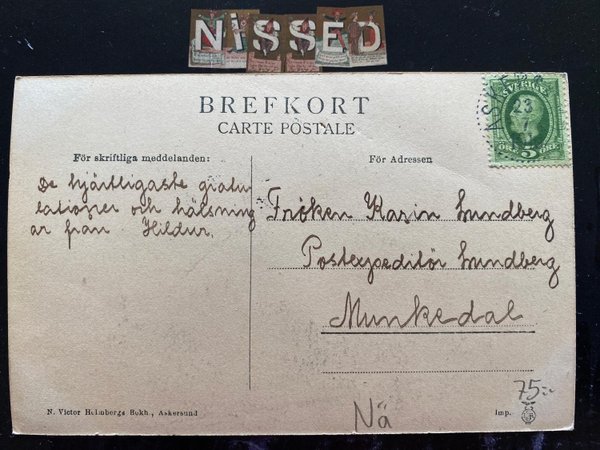 NiSSED
BREFKORT
CARTE POSTALE
SVERIGE
23
ÖRE 5 ÖRE
För skriftliga meddelanden:
För Adressen
De hjärtligaste gratu
lationer och hälsning
ar från Hildur.
Fröken Karin Lundberg
Postexpeditör Lundberg
Munkedal
75:-
N. Victor Holmbergs Bokh., Askersund
Nä
Imp.